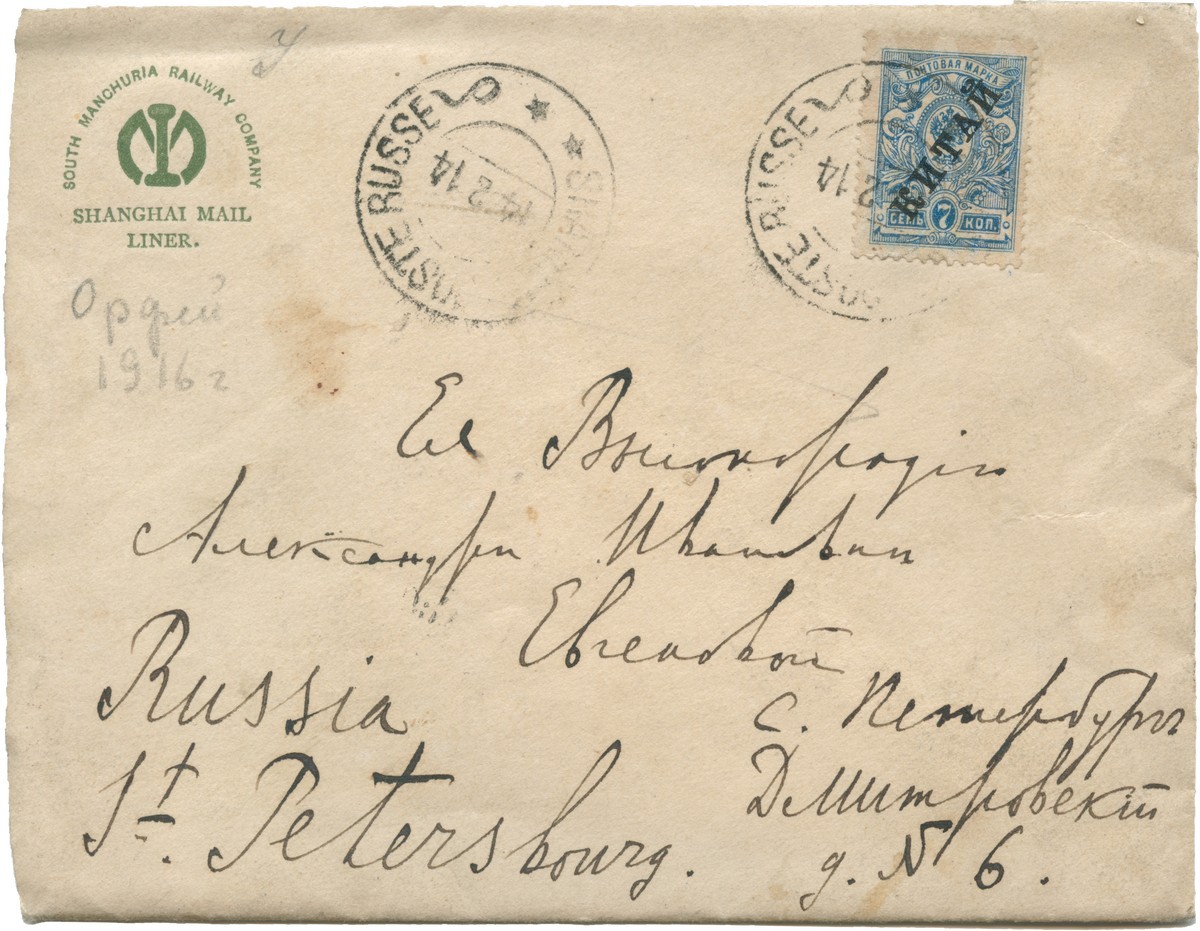 SOUTH MANCHURIA RAILWAY COMPANY
SHANGHAI MAIL
LINER.
у
Орфей
1916 г
POSTE RUSSE
14 2 14
POSTE RUSSE
2 14
ПОЧТОВАЯ МАРКА
КИТАЙ
СЕМЬ 7 КОП.
Ея Высокородію
Александри Ивановни
Евгеновой
Russia
St. Petersbourg.
С. Петербургъ
Дмитровскій
д. № 6.